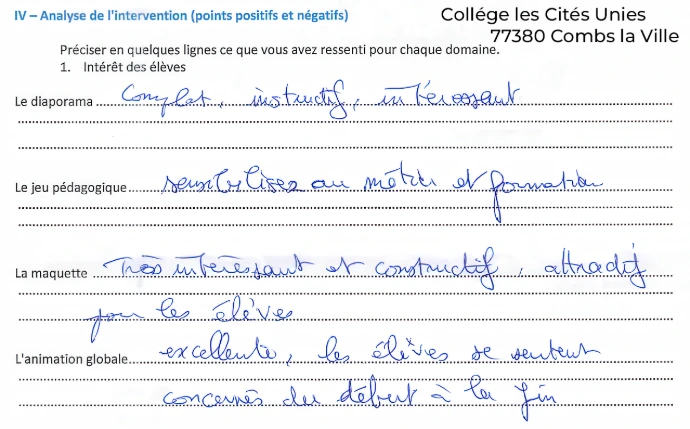 IV – Analyse de l'intervention (points positifs et négatifs)
Collége les Cités Unies
77380 Combs la Ville
Préciser en quelques lignes ce que vous avez ressenti pour chaque domaine.
1. Intérêt des élèves
Le diaporama Complet, instructif, intéressant
Le jeu pédagogique sensibilisez au métier et formation
La maquette Très intéressant et constructif, attractif
pour les élèves
L'animation globale excellente, les élèves se sentent
concernés du début à la fin